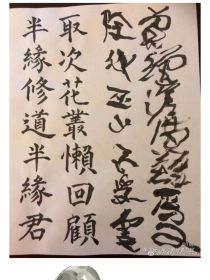 曾經滄海難為水
除却巫山不是雲
取次花叢懶回顧
半緣修道半緣君